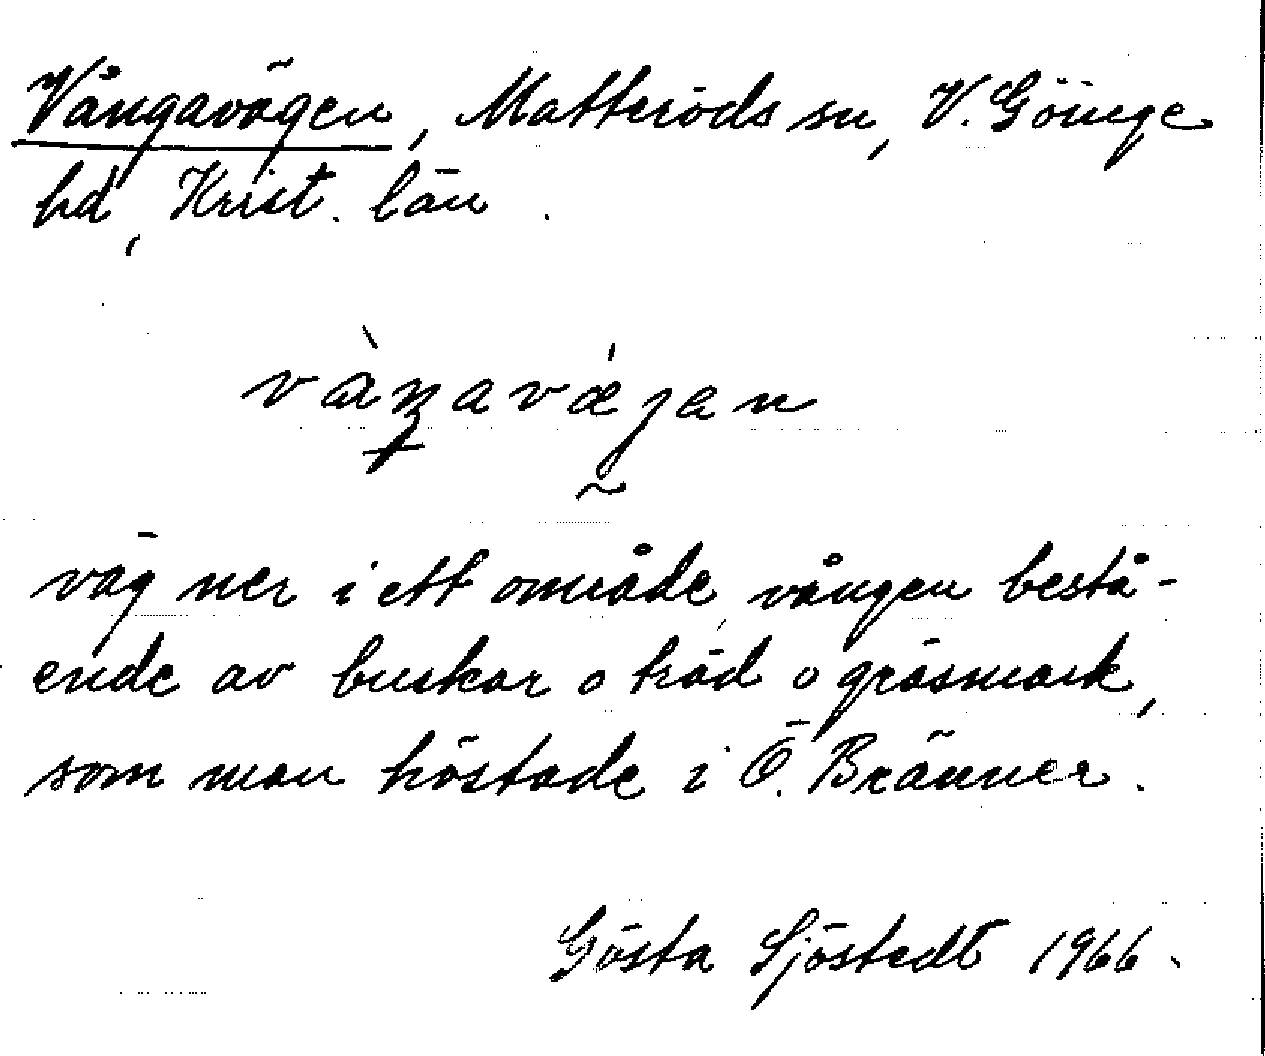 Vångavägen, Matteröds sn, V. Göinge
hd, Krist. län.
väg ner i ett område, vången bestå-
ende av buskar o träd o gräsmark,
som man höstade i Ö. Bränner.
Gösta Sjöstedt 1966.